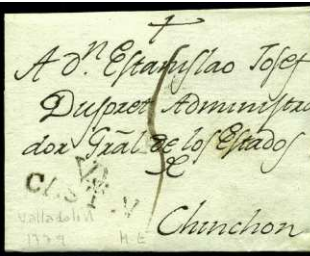 A d.ⁿ Estanislao Josef
Duspret Administra
dor Grãl de los Estados
de
Chinchon
Valladolid
1779